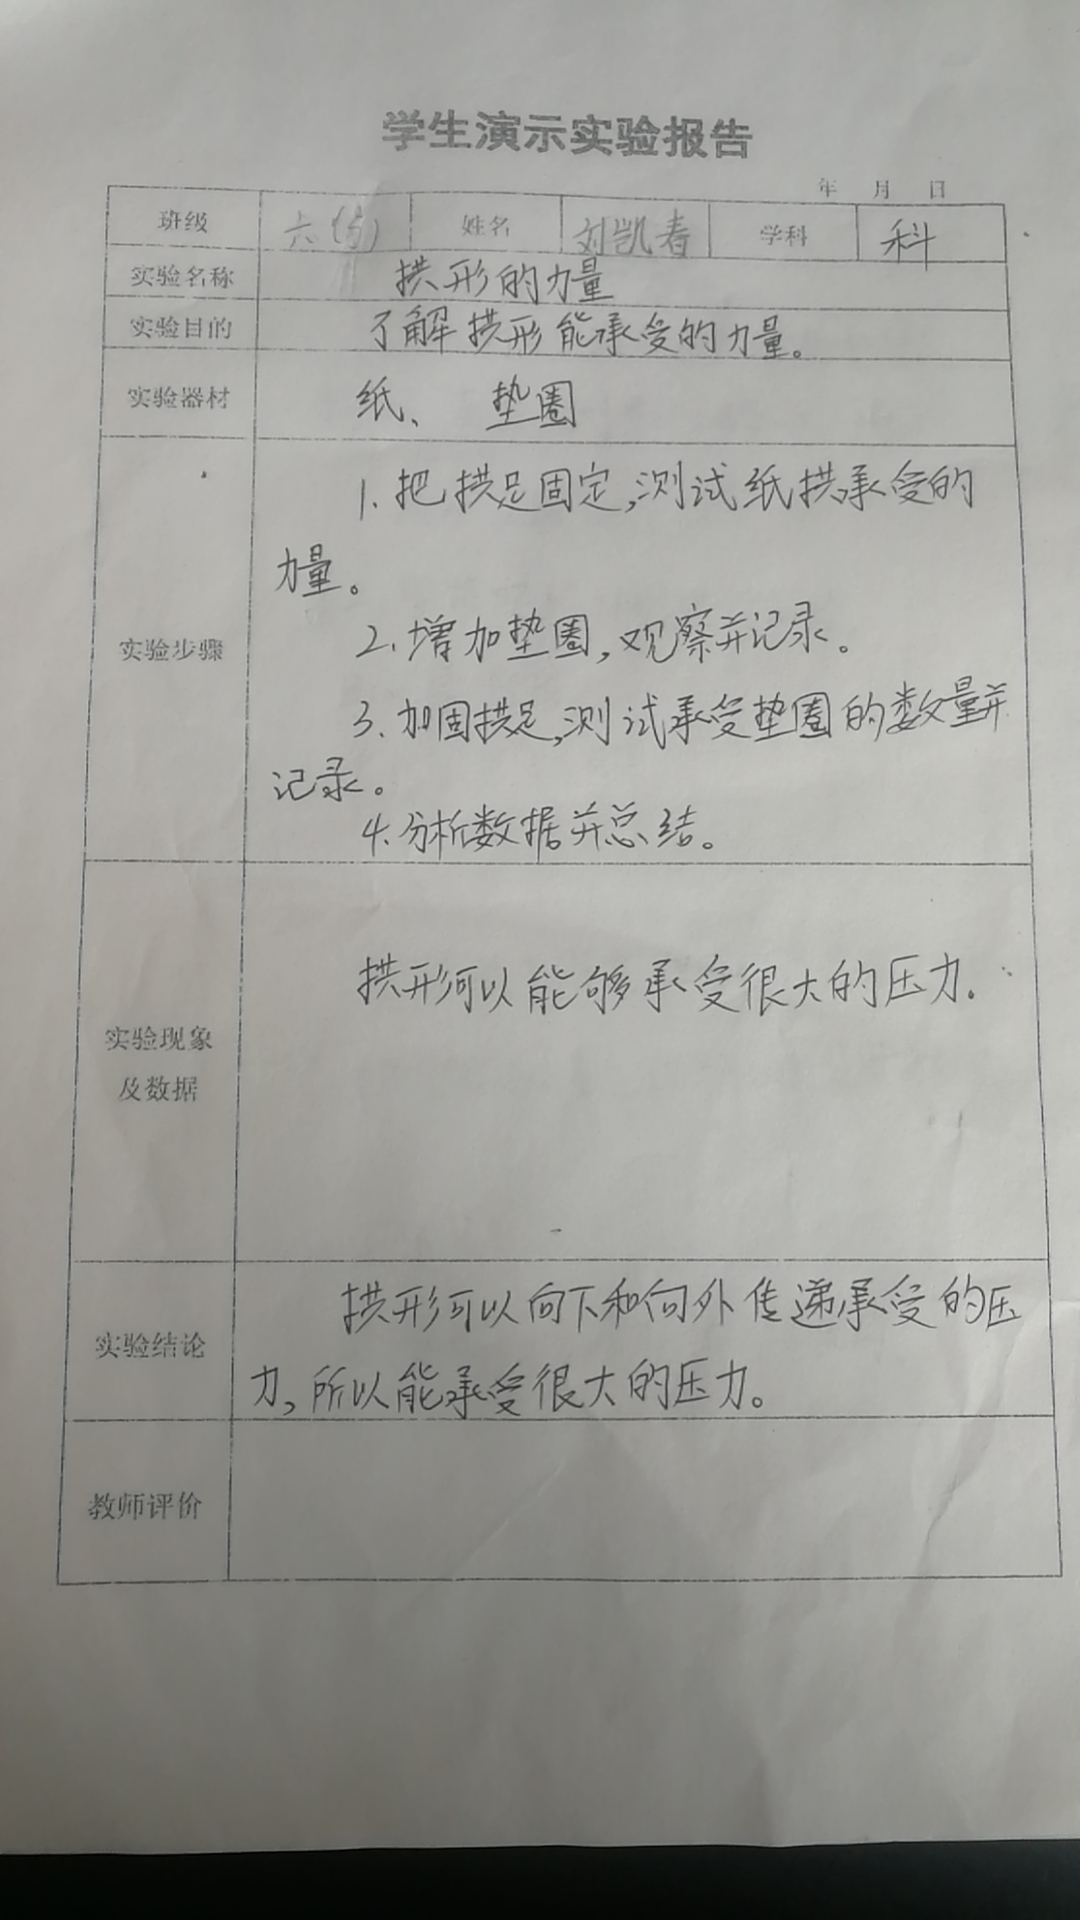 学生演示实验报告
年 月 日
班级 六 姓名 刘凯春 学科 科
实验名称 拱形的力量
实验目的 了解拱形能承受的力量。
实验器材 纸、 垫圈
1. 把拱足固定,测试纸拱承受的
力量。
实验步骤 2. 增加垫圈,观察并记录。
3. 加固拱足,测试承受垫圈的数量并
记录。
4. 分析数据并总结。
拱形可以能够承受很大的压力.
实验现象
及数据
拱形可以向下和向外传递承受的压
实验结论
力,所以能承受很大的压力。
教师评价